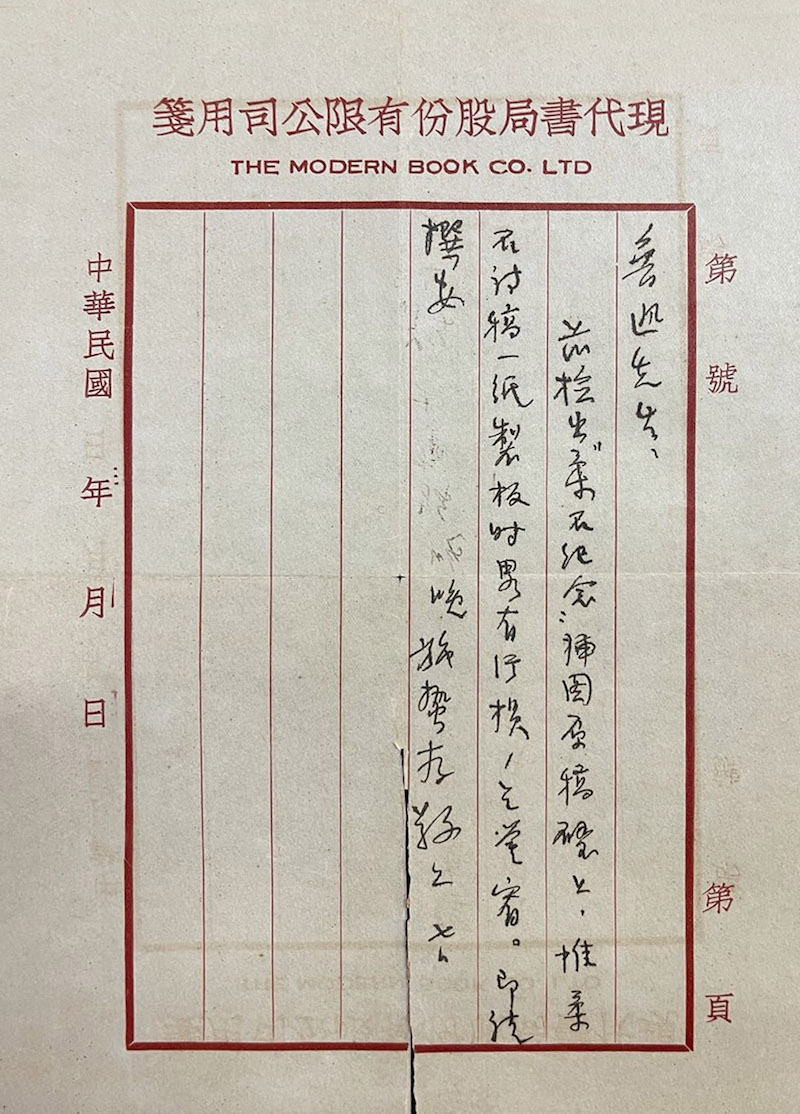 現代書局股份有限公司用箋
THE MODERN BOOK CO. LTD
第 號
第 頁
魯迅先生、
茲檢出“柔石紀念”插圖原稿璧上,惟柔
石詩稿一紙製板时畧有汙損,乞宥。即請
撰安
晚施蟄存敬上
中華民國 年 月 日